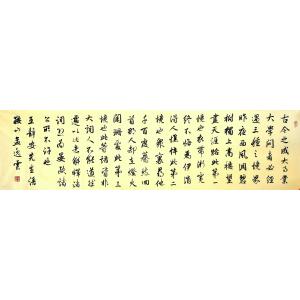 古今之成大事業
大學問者必經
過三種之境界
昨夜西風凋碧
樹獨上高樓望
盡天涯路此第一
境也衣帶漸寬
終不悔為伊消
得人憔悴此第二
境也眾裏尋他
千百度驀然回
首那人卻在燈火
闌珊處此第三
境也此等語非
大詞人不能道然
遽以此意解釋諸
詞恐為晏歐諸
公所不許也
王靜安先生語